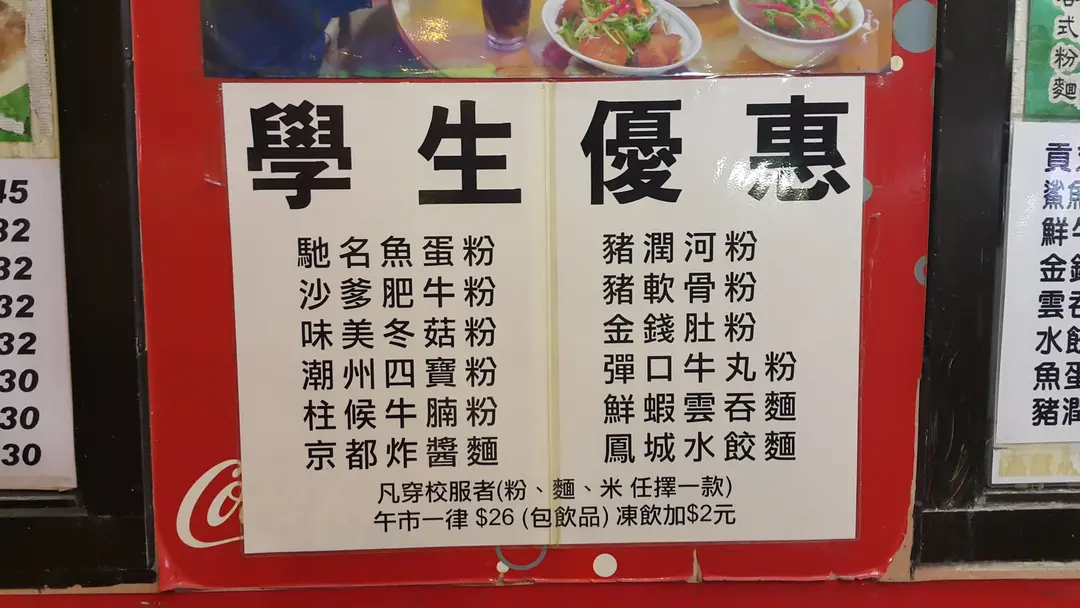 學生優惠
馳名魚蛋粉
沙爹肥牛粉
味美冬菇粉
潮州四寶粉
柱候牛腩粉
京都炸醬麵
豬潤河粉
豬軟骨粉
金錢肚粉
彈口牛丸粉
鮮蝦雲吞麵
鳳城水餃麵
凡穿校服者(粉、麵、米 任擇一款)
午市一律 $26 (包飲品) 凍飲加$2元
Co
45
32
32
32
32
30
30
30
式粉麵
貢
鯊魚
鮮牛
金錢
雲吞
水餃
魚蛋
豬潤